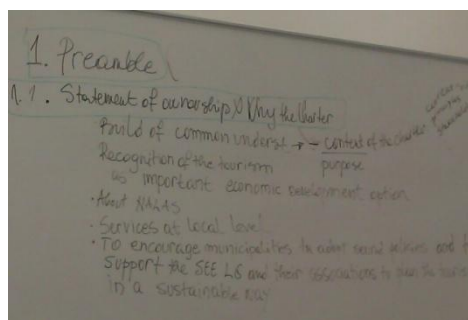 1. Preamble
1.1. Statement of ownership & Why the Charter
Build of common underst → - context of the charter
purpose
Recognition of the tourism
as important economic development option
· About NALAS
· Services at local level
· To encourage municipalities to
Support the SEE LG and their associations to
in a sustainable way